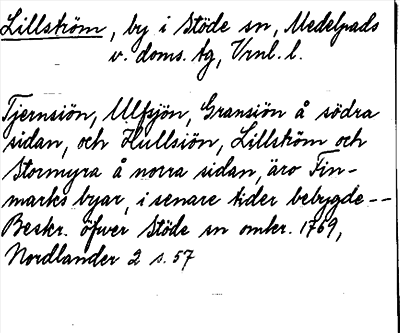 Lillström, by i Stöde sn, Medelpads
v. doms. tg, Vrnl. l.
Tjernsiön, Ulfsjön, Gransiön å södra
sidan, och Hullsiön, Lillström och
Stormyra å norra sidan, äro Fin-
marks byar, i senare tider bebygde--
Beskr. öfwer Stöde sn omkr. 1769,
Nordlander 2 s. 57